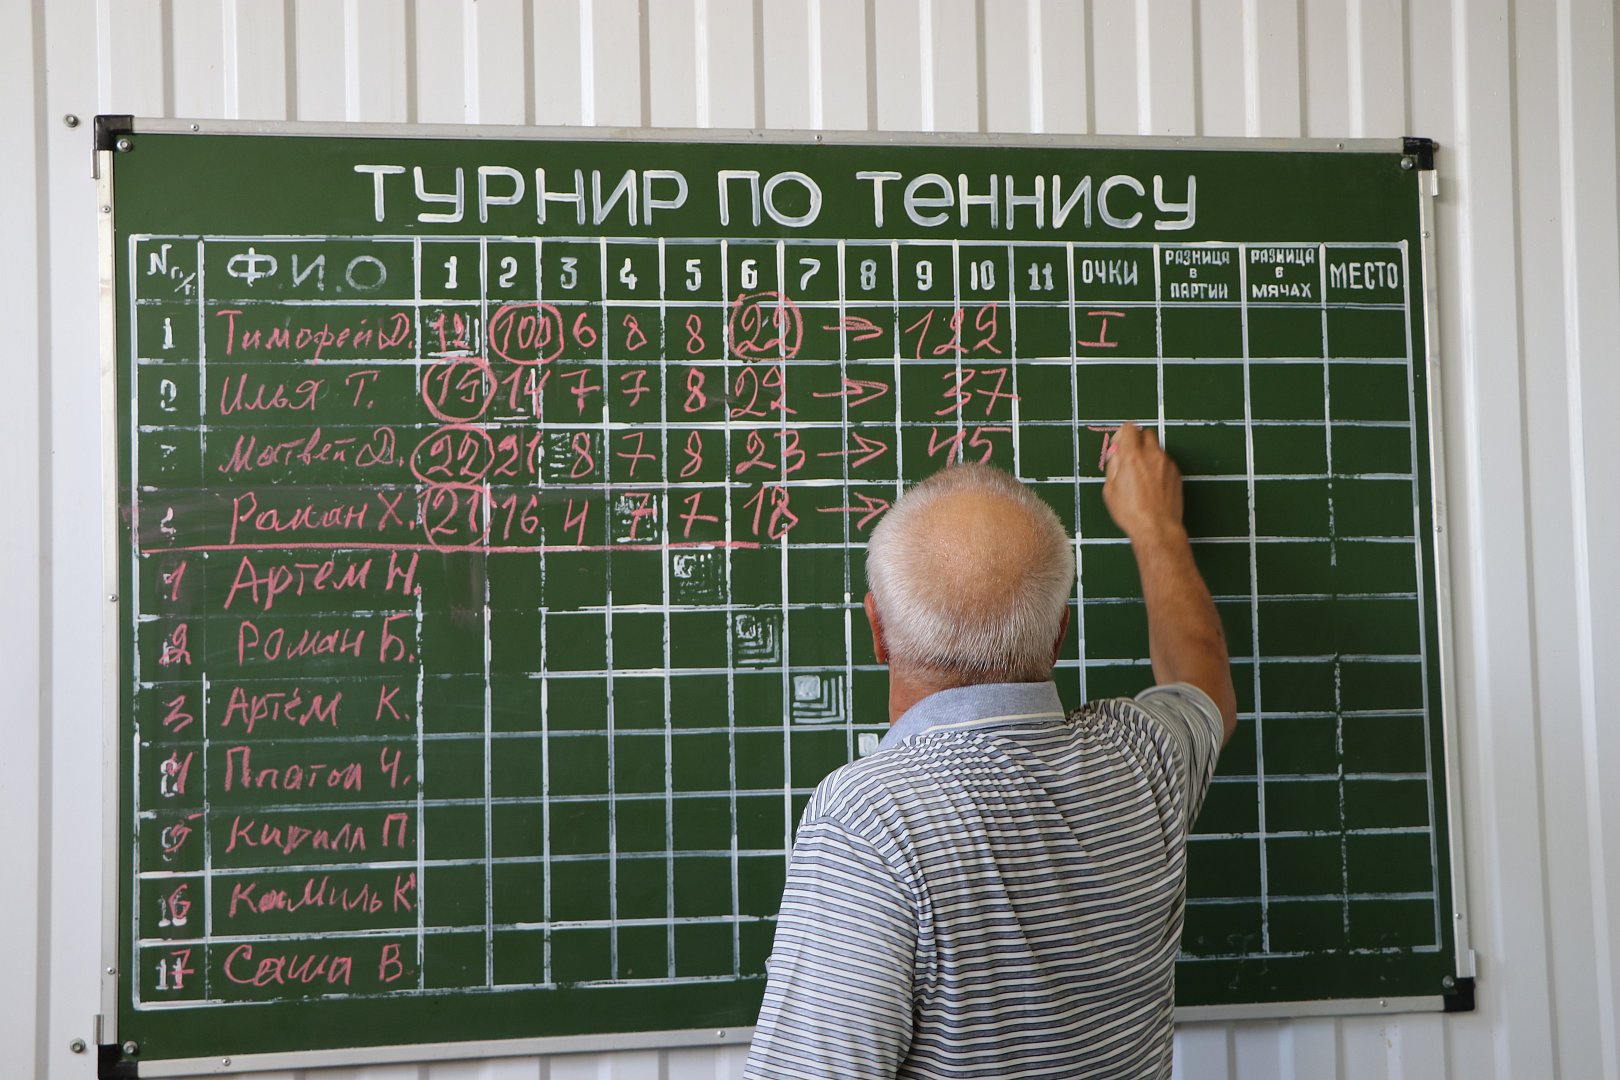 ТУРНИР ПО ТЕННИСУ
№ п/п Ф.И.О 1 2 3 4 5 6 7 8 9 10 11 ОЧКИ РАЗНИЦА В ПАРТИИ РАЗНИЦА В МЯЧАХ МЕСТО
1 Тимофей Д. 12 100 6 8 8 22 → 122 I
2 Илья Т. 15 14 7 7 8 22 → 37
Матвей Д. 22 21 8 7 8 23 → 45
Роман Х. 21 16 4 7 7 18 →
1 Артём Н.
2 Роман Б.
3 Артём К.
4 Платон Ч.
5 Кирилл П
6 Камиль К
7 Саша В